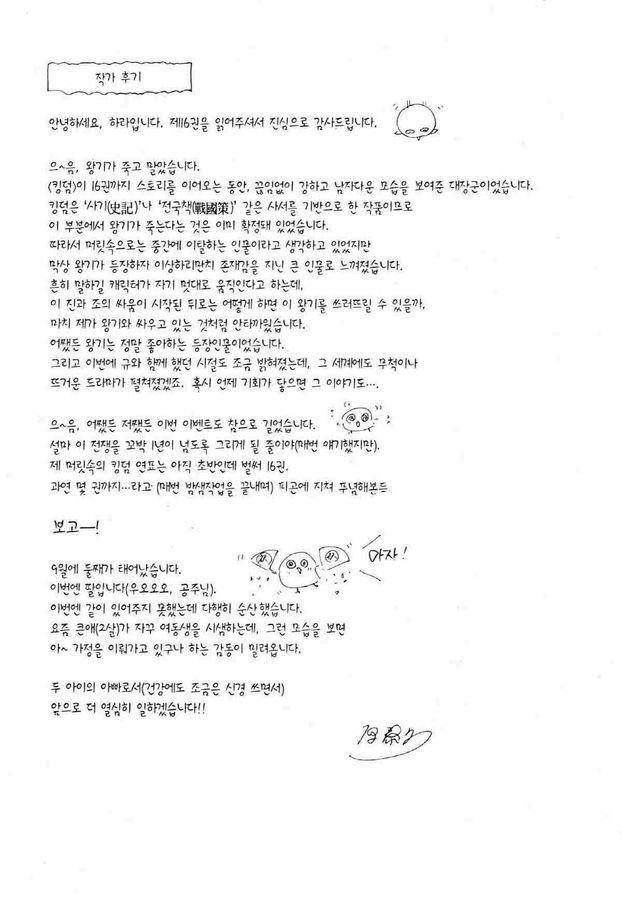 작가 후기
안녕하세요, 하라입니다. 제16권을 읽어주셔서 진심으로 감사드립니다.
으~음, 왕기가 죽고 말았습니다.
(킹덤)이 16권까지 스토리를 이어오는 동안, 끊임없이 강하고 남자다운 모습을 보여준 대장군이었습니다.
킹덤은 '사기(史記)'나 '전국책(戰國策)' 같은 사서를 기반으로 한 작품이므로
이 부분에서 왕기가 죽는다는 것은 이미 확정돼 있었습니다.
따라서 머릿속으로는 중간에 이탈하는 인물이라고 생각하고 있었지만
막상 왕기가 등장하자 이상하리만치 존재감을 지닌 큰 인물로 느껴졌습니다.
흔히 말하길 캐릭터가 자기 멋대로 움직인다고 하는데,
이 진과 조의 싸움이 시작된 뒤로는 어떻게 하면 이 왕기를 쓰러뜨릴 수 있을까,
마치 제가 왕기와 싸우고 있는 것처럼 안타까웠습니다.
어쨌든 왕기는 정말 좋아하는 등장인물이었습니다.
그리고 이번에 규와 함께 했던 시절도 조금 밝혀졌는데, 그 세계에도 무척이나
뜨거운 드라마가 펼쳐졌겠죠. 혹시 언제 기회가 닿으면 그 이야기도….
으~음, 어쨌든 저쨌든 이번 이벤트도 참으로 길었습니다.
설마 이 전쟁을 꼬박 1년이 넘도록 그리게 될 줄이야(매번 얘기했지만).
제 머릿속의 킹덤 연표는 아직 초반인데 벌써 16권.
과연 몇 권까지…라고 (매번 밤샘작업을 끝내며) 피곤에 지쳐 푸념해본 듯
보고—!
9월에 둘째가 태어났습니다.
아자!
이번엔 딸입니다(우오오오, 공주님).
이번엔 같이 있어주지 못했는데 다행히 순산했습니다.
요즘 큰애(2살)가 자꾸 여동생을 시샘하는데, 그런 모습을 보면
아~ 가정을 이뤄가고 있구나 하는 감동이 밀려옵니다.
두 아이의 아빠로서(건강에도 조금은 신경 쓰면서)
앞으로 더 열심히 일하겠습니다!!